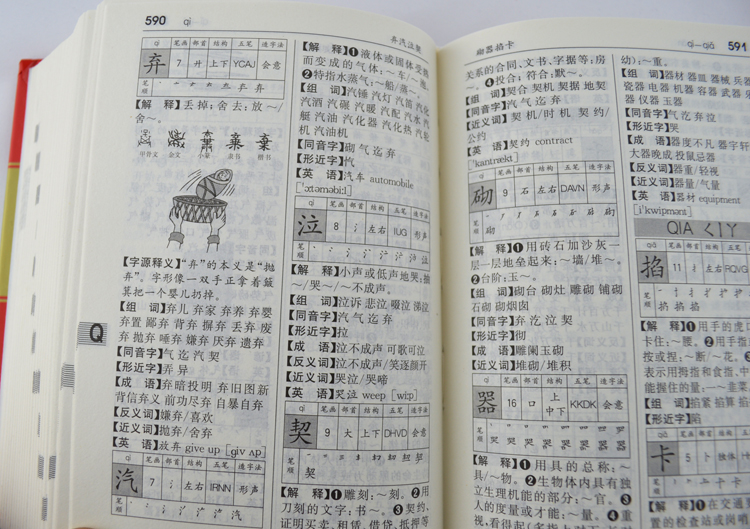 590 qì
弃汽泣契
qì 笔画 部首 结构 五笔 造字法
弃 7 廾 上下 YCAJ 会意
笔顺
【解 释】丢掉;舍去:放～/
舍～。
甲骨文 金文 小篆 隶书 楷书
【字源释义】“弃”的本义是“抛
弃”。字形像一双手正拿着簸
箕把一个婴儿扔掉。
【组 词】弃儿 弃家 弃养 弃婴
弃置 鄙弃 背弃 摒弃 丢弃 废
弃 抛弃 唾弃 嫌弃 厌弃 遗弃
【同音字】气 迄 汽 契
【形近字】弄 异
【成 语】弃暗投明 弃旧图新
背信弃义 前功尽弃 自暴自弃
【反义词】嫌弃/喜欢
【近义词】抛弃/舍弃
【英 语】放弃 give up [ɡiv ʌp]
qì 笔画 部首 结构 五笔 造字法
汽 7 氵 左右 IRNN 形声
笔顺
Q
【解 释】❶液体或固体受热
而变成的气体:～车/～艇。
❷特指水蒸气:～船/蒸～。
【组 词】汽锤 汽灯 汽笛 汽化
汽酒 汽碾 汽暖 汽配 汽水 汽
艇 汽油 汽化器 汽化热 汽轮
机 汽油机
【同音字】砌 气 迄 弃
【形近字】忾
【英 语】汽车 automobile
[ˈɔːtəməbiːl]
qì 笔画 部首 结构 五笔 造字法
泣 8 氵 左右 IUG 形声
笔顺
【解 释】小声或低声地哭:抽
～/哭～/～不成声。
【组 词】泣诉 悲泣 啜泣 涕泣
【同音字】气 汽 迄 弃
【形近字】拉
【成 语】泣不成声 可歌可泣
【反义词】泣不成声/笑逐颜开
【近义词】哭泣/哭啼
【英 语】哭泣 weep [wiːp]
qì 笔画 部首 结构 五笔 造字法
契 9 大 上下 DHVD 会意
笔顺
契
【解 释】❶雕刻:～刻。❷用
刀刻的文字:书～。❸契约,
证明买卖、租赁、借贷、抵押等
砌器掐卡
关系的合同、文书、字据等:房
～。❹投合;符合:默～。
【组 词】契合 契机 契据 地契
【同音字】气 汽 迄 弃
【近义词】契机/时机 契约/
公约
【英 语】契约 contract
[ˈkɒntrækt]
qì 笔画 部首 结构 五笔 造字法
砌 9 石 左右 DAVN 形声
笔顺 砌 砌
【解 释】❶用砖石加沙灰一
层一层地垒起来:～墙/堆～。
❷台阶:玉～。
【组 词】砌合 砌灶 雕砌 铺砌
石砌 砌烟囱
【同音字】弃 汔 泣 契
【形近字】彻
【成 语】雕阑玉砌
【近义词】堆砌/堆积
qì 笔画 部首 结构 五笔 造字法
器 16 口 上中下 KKDK 会意
笔顺
【解 释】❶用具的总称:～
具/～物。❷生物体内具有独
立生理机能的部分:～官。❸
人的度量或才能:～量。❹重
qì—qiǎ 591
幼):～重。
【组 词】器材 器皿 器械 兵器
瓷器 电器 机器 容器 武器
器 仪器 玉器
【同音字】气 汔 泣 弃
【形近字】哭
【成 语】器度不凡 器宇轩
大器晚成 投鼠忌器
【反义词】器重/轻视
【近义词】器量/气量
【英 语】器材 equipment
[iˈkwipmənt]
QIA ㄑㄧㄚ
qiā 笔画 部首 结构 五笔
掐 11 扌 左右 RQVG
笔顺
掐 掐 掐
【解 释】❶用手的虎口
卡住:～腰。❷用手指
按或捏:～断/～花。❸
表示用拇指和食指
能握住的量:一～韭菜
【组 词】掐紧 掐算
【形近字】陷
qiǎ 笔画 部首 结构
卡 5 卜 独体
笔顺
【解 释】❶在交通